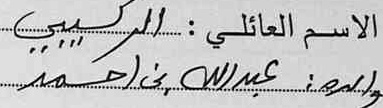 الاسم العائلي : الركيبي
والده : عبدالله بن احمد